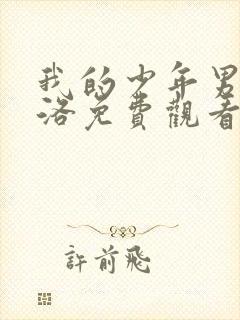 我的少年男
洛免費觀看
許前飛